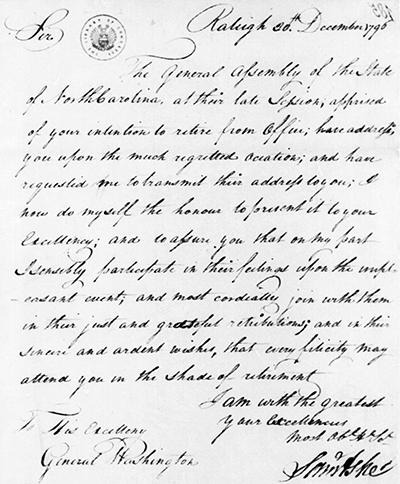 Raleigh 30th December 1796
Sir,
The General Assembly of the State
of North Carolina, at their late Session; apprised
of your intention to retire from Office; have address'd
you upon the much regretted Occation; and have
requested me to transmit their address to you; I
now do myself the honour to present it to your
Excellency; and to assure you that on my part
I sensibly participate in their feelings upon the unpl-
-easant event; and most cordially join with them
in their just and grateful retributions; and in their
sincere and ardent wishes, that every filicity may
attend you in the shade of retirement
I am with the greatest
Your Excellencies
Most Obt. H. St
Saml Ashe
To His Excelleny
General Washington